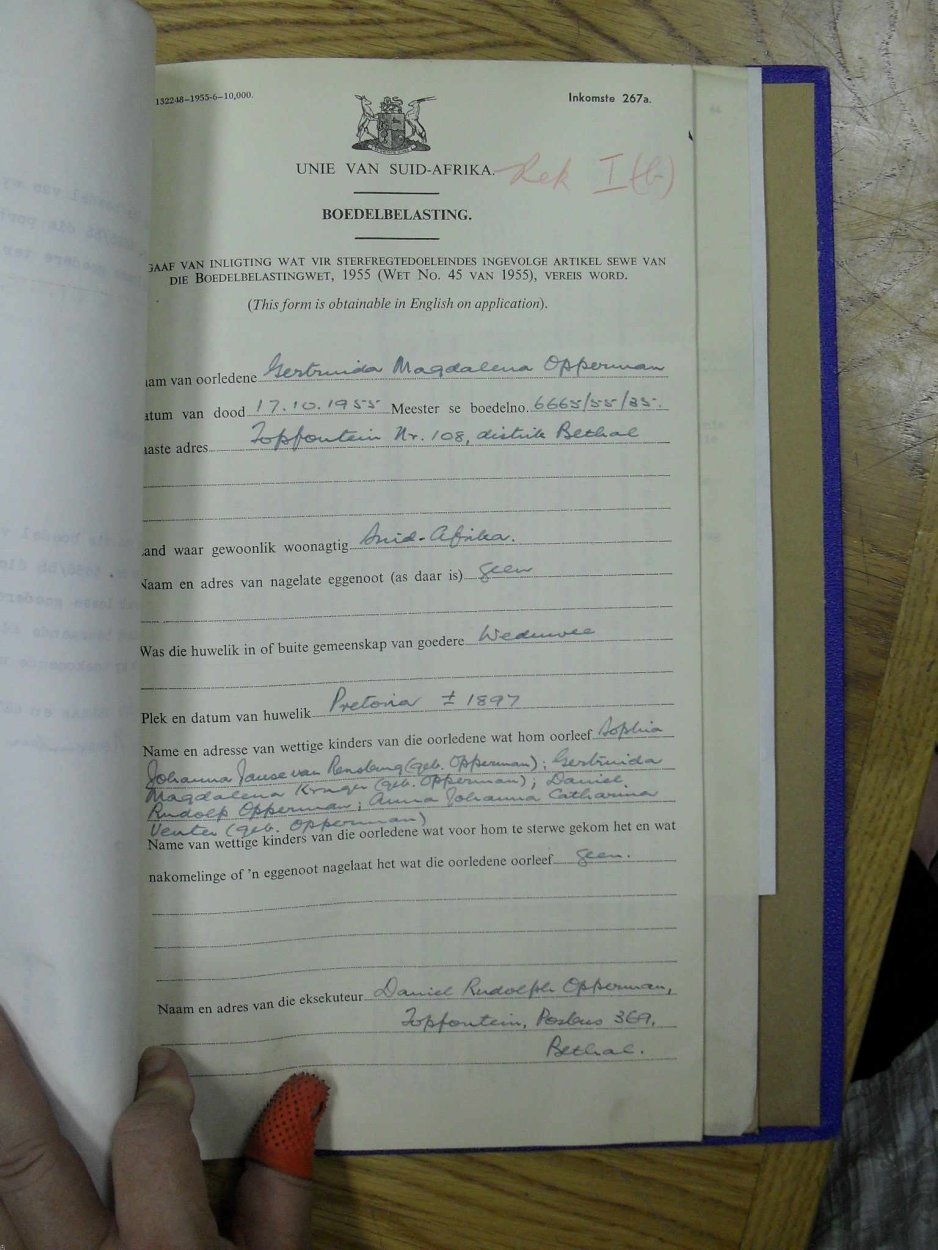 132248–1955-6–10,000.
Inkomste 267a.
UNIE VAN SUID-AFRIKA.
Rek I(b)
BOEDELBELASTING.
GAAF VAN INLIGTING WAT VIR STERFREGTEDOELEINDES INGEVOLGE ARTIKEL SEWE VAN
DIE BOEDELBELASTINGWET, 1955 (WET NO. 45 VAN 1955), VEREIS WORD.
(This form is obtainable in English on application).
aam van oorledene Gertruida Magdalena Opperman
atum van dood 17.10.1955 Meester se boedelno. 6665/55/35.
aaste adres Topfontein Nr. 108, distrik Bethal
and waar gewoonlik woonagtig Suid-Afrika.
Naam en adres van nagelate eggenoot (as daar is) geen
Was die huwelik in of buite gemeenskap van goedere Weduwee
Plek en datum van huwelik Pretoria ± 1897
Name en adresse van wettige kinders van die oorledene wat hom oorleef Sophia
Johanna Janse van Rensburg (geb. Opperman); Gertruida
Magdalena Kruger (geb. Opperman); Daniel
Rudolf Opperman; Anna Johanna Catharina
Venter (geb. Opperman)
Name van wettige kinders van die oorledene wat voor hom te sterwe gekom het en wat
nakomelinge of 'n eggenoot nagelaat het wat die oorledene oorleef geen.
Naam en adres van die eksekuteur Daniel Rudolph Opperman,
Topfontein, Posbus 369,
Bethal.